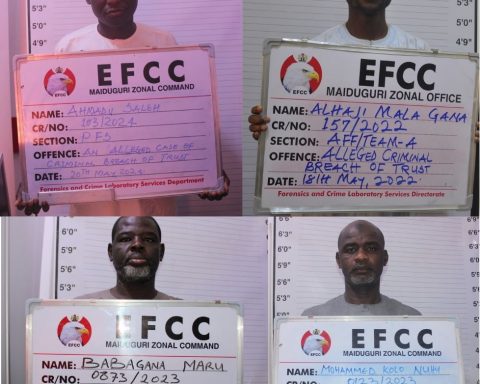 5'3"
5'0"
4'9"
EFCC
MAIDUGURI ZONAL COMMAND
EFCC
NAME: AHMADU SALEH
CR/NO: 193/2024
SECTION: PFS
OFFENCE: AN ALLEGED CASE OF
CRIMINAL BREACH OF TRUST
DATE: 20TH MAY 2024
Forensics and Crime Laboratory Services Department
5'3"
4'9"
EFCC
MAIDUGURI ZONAL OFFICE
EFCC
NAME: ALHAJI MALA GANA
CR/NO: 157/2022
SECTION: AFF/TEAM-A
OFFENCE: ALLEGED CRIMINAL
BREACH OF TRUST
DATE: 18TH MAY, 2022
Forensics and Crime Laboratory Services Directorate
6'0"
5'9"
5'6"
5'3"
EFCC
MAIDUGURI ZONAL COMMAND
EFCC
NAME: BABAGANA MARU
CR/NO: 0873/2023
6'0"
5'9"
5'6"
5'3"
EFCC
MAIDUGURI ZONAL COMMAND
EFCC
NAME: MOHAMMED KOLO NUHU
CR/NO: